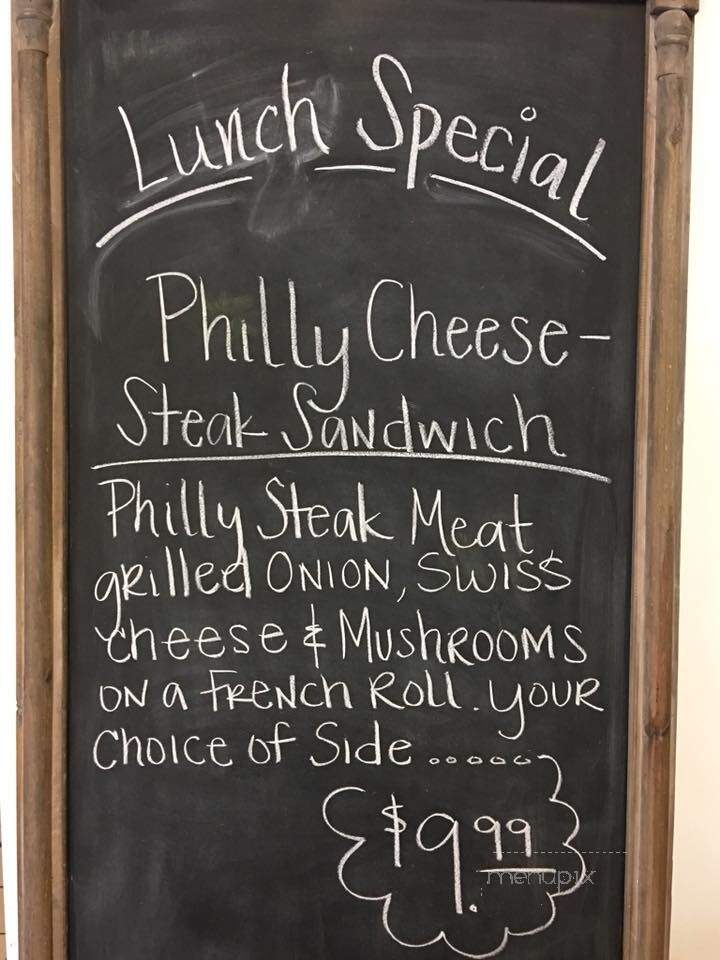 Lunch Special
Philly Cheese-
Steak Sandwich
Philly Steak Meat
grilled ONION, SWISS
cheese & MUSHROOMS
ON a FRENCH ROLL. YOUR
CHOICE OF Side .....
$9.99
menupix